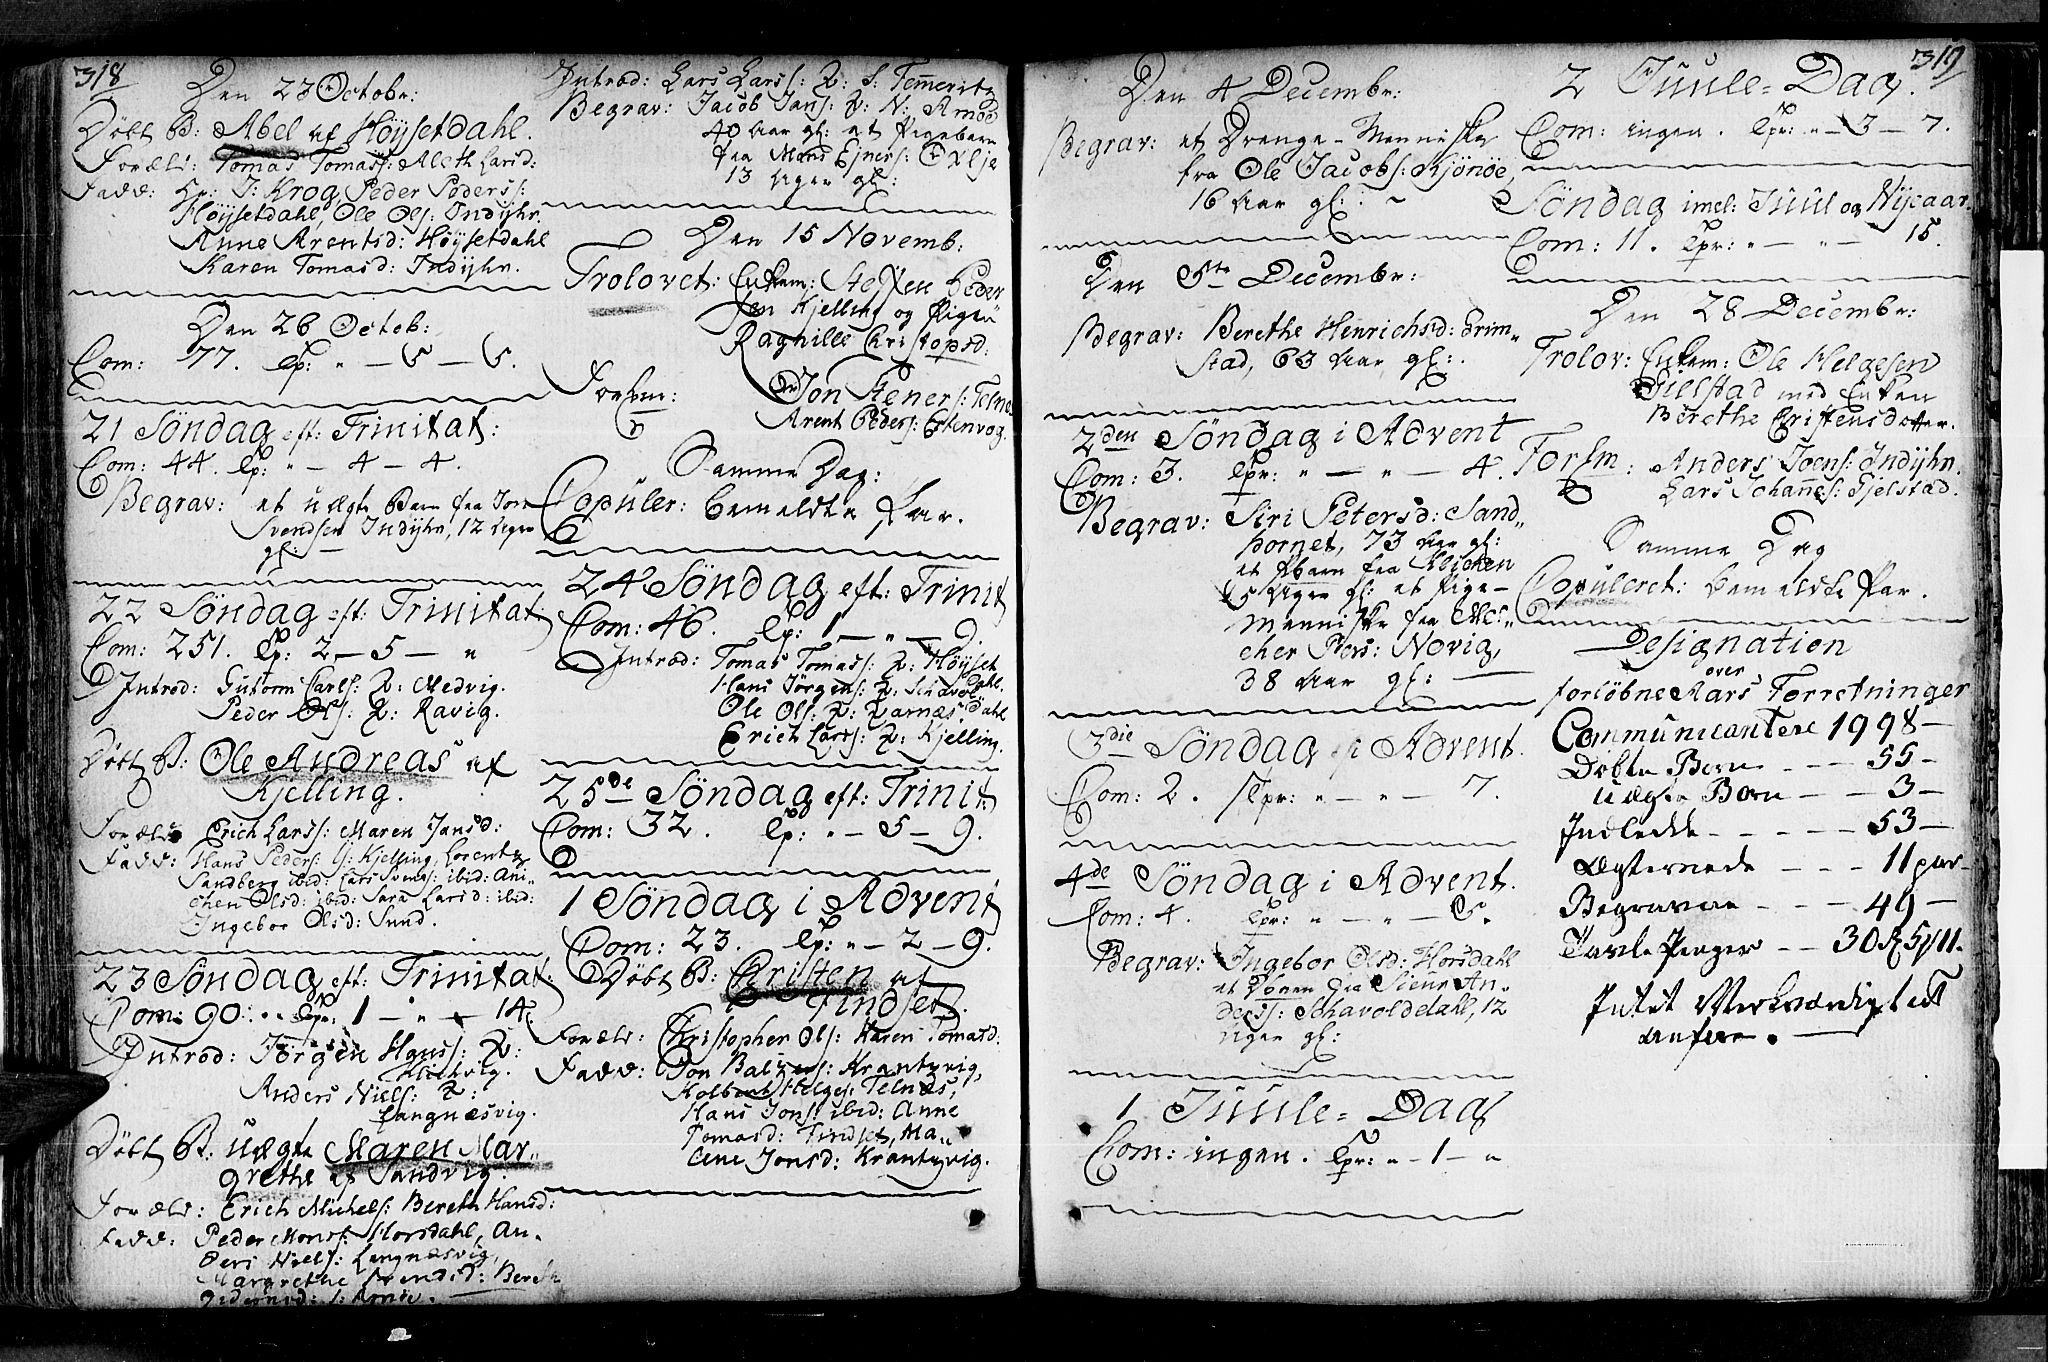 318
Den 23 Octobr:
Døbt B: Abel af Høysetdahl.
Foræld: Tomas Tomass: Aleth Larsd:
Fadd: Hr: J: Krog, Peder Peders:
Høysetdahl, Ole Ols: Indijhr.
Anne Arentsd: Høysetdahl
Karen Tomasd: Indijhr.
Den 26 Octob:
Com: 77. Cp: " — 5 — 5.
21 Søndag eft: Trinitat:
Com: 44. Cp: " — 4 — 4.
Begrav: et uægte Barn fra Jon
Svendsen Indijhr, 12 Uger
gl: —
22 Søndag eft: Trinitat:
Com: 251. Cp: 2 — 5 — "
Introd: Gutorm Carls: Q: Medvig.
Peder Ols: Q: Ravig.
Døbt B: Ole Andreas af
Kjelling.
Foræld: Erich Larss: Maren Jansd:
Fadd: Hans Peders: G: Kjelling, Lorentz
Sandberg ibid: Lars Svends: ibid: Ani-
chen Olsd: ibid: Sara Larsd: ibid:
Ingebor Olsd: Sund.
23 Søndag eft: Trinitat:
Com: 90. Cpr: 1 — " — 14.
Introd: Jørgen Hanss: Q:
Klichvig.
Anders Niels: Q:
Langnæsvig.
Døbt B: uægte Maren Mar-
grethe af Sandvig.
Foræld: Erich Michels: Bereth Hansd:
Fadd: Peder Mons: Horsdahl, An-
ders Niels: Langnæsvig,
Margrethe Svendsd: Bereth
Pedersd: S: Arnøe.
Introd: Lars Larss: Q: S: Temmeritz
Begrav: Jacob Jans: Q: N: Arnøe
40 Aar gl: et Pigebarn
fra Mons Ejners: Evije
13 Uger gl:
Den 15 Novemb:
Trolovet: Enkem: Steffen Peder
sen Kjelling og Pigen
Ragnille Christopsd:
Forlom: Jon Steners: Telnes
Arent Peders: Estenvog.
Samme Dag:
Copuler: bemeldte Par.
24 Søndag eft: Trinit
Com: 46. Cp: 1 — " — 9.
Introd: Tomas Tomass: Q: Høyset
dahl.
Hans Jørgens: Q: Schavol
dahl
Ole Ols: Q: Qarnæs.
Erich Larss: Q: Kjelling.
25de Søndag eft: Trinit:
Com: 32. Cp: " — 5 — 9.
1 Søndag i Advent
Com: 23. Cp: " — 2 — 9.
Døbt B: Christen af
Tindset.
Foræld: Christopher Ols: Karen Tomasd:
Fadd: Jon Baltzers: Krantzvig,
Kolbent Helges: Telnæs,
Hans Jons: ibid: Anne
Tomasd: Tindset, Ma-
lene Jonsd: Krantzvig.
319
Den 4 Decembr:
Begrav: et Drenge-Menniske
fra Ole Jacobs: Kjønøe,
16 Aar gl: -
Den 5te Decembr:
Begrav: Berethe Henrichsd: Grim-
stad, 63 Aar gl:.
2den Søndag i Advent
Com: 3. Cpr: " — " — 4.
Begrav: Siri Petersd: Sand-
hornet, 73 Aar gl:
et Barn fra Klichen
5 Uger gl: et Pige-
Menniske fra Mel-
cher Pers: Novig,
38 Aar gl: —
3die Søndag i Advent.
Com: 2. Cpr: " — " — 7.
4de Søndag i Advent.
Com: 4. Cpr: " — " — 5.
Begrav: Ingebor Olsd: Horsdahl
et Barn fra Sieur An-
derss: Schavoldedahl, 12
Uger gl:
1 Juule-Dag
Com: ingen. Cpr: " — 1 — "
2 Juule-Dag.
Com: ingen. Cpr: " — 3 — 7.
Søndag imel: Juul og Nyeaar.
Com: 11. Cpr: " — " — 15.
Den 28 Decembr:
Trolov: Enkem: Ole Helgesen
Gillstad med Enken
Berethe Cristensdotter.
Forlm: Anders Joens: Indijhr.
Lars Johannes: Gjelstad.
Samme Dag
Copuleret: bemeldte Par.
Designation
over
forløbne Aars Forretninger
Communicantere 1998 —
Døbte Børn - - - 55 —
uægte Børn - - 3 —
Indledde - - - - - 53 —
Ægteviede - - - 11 par —
Begravne - - - 49 —
Tavle Penger - - 30 R 5 / 11.
Intet Merkværdigt at
anføre. —